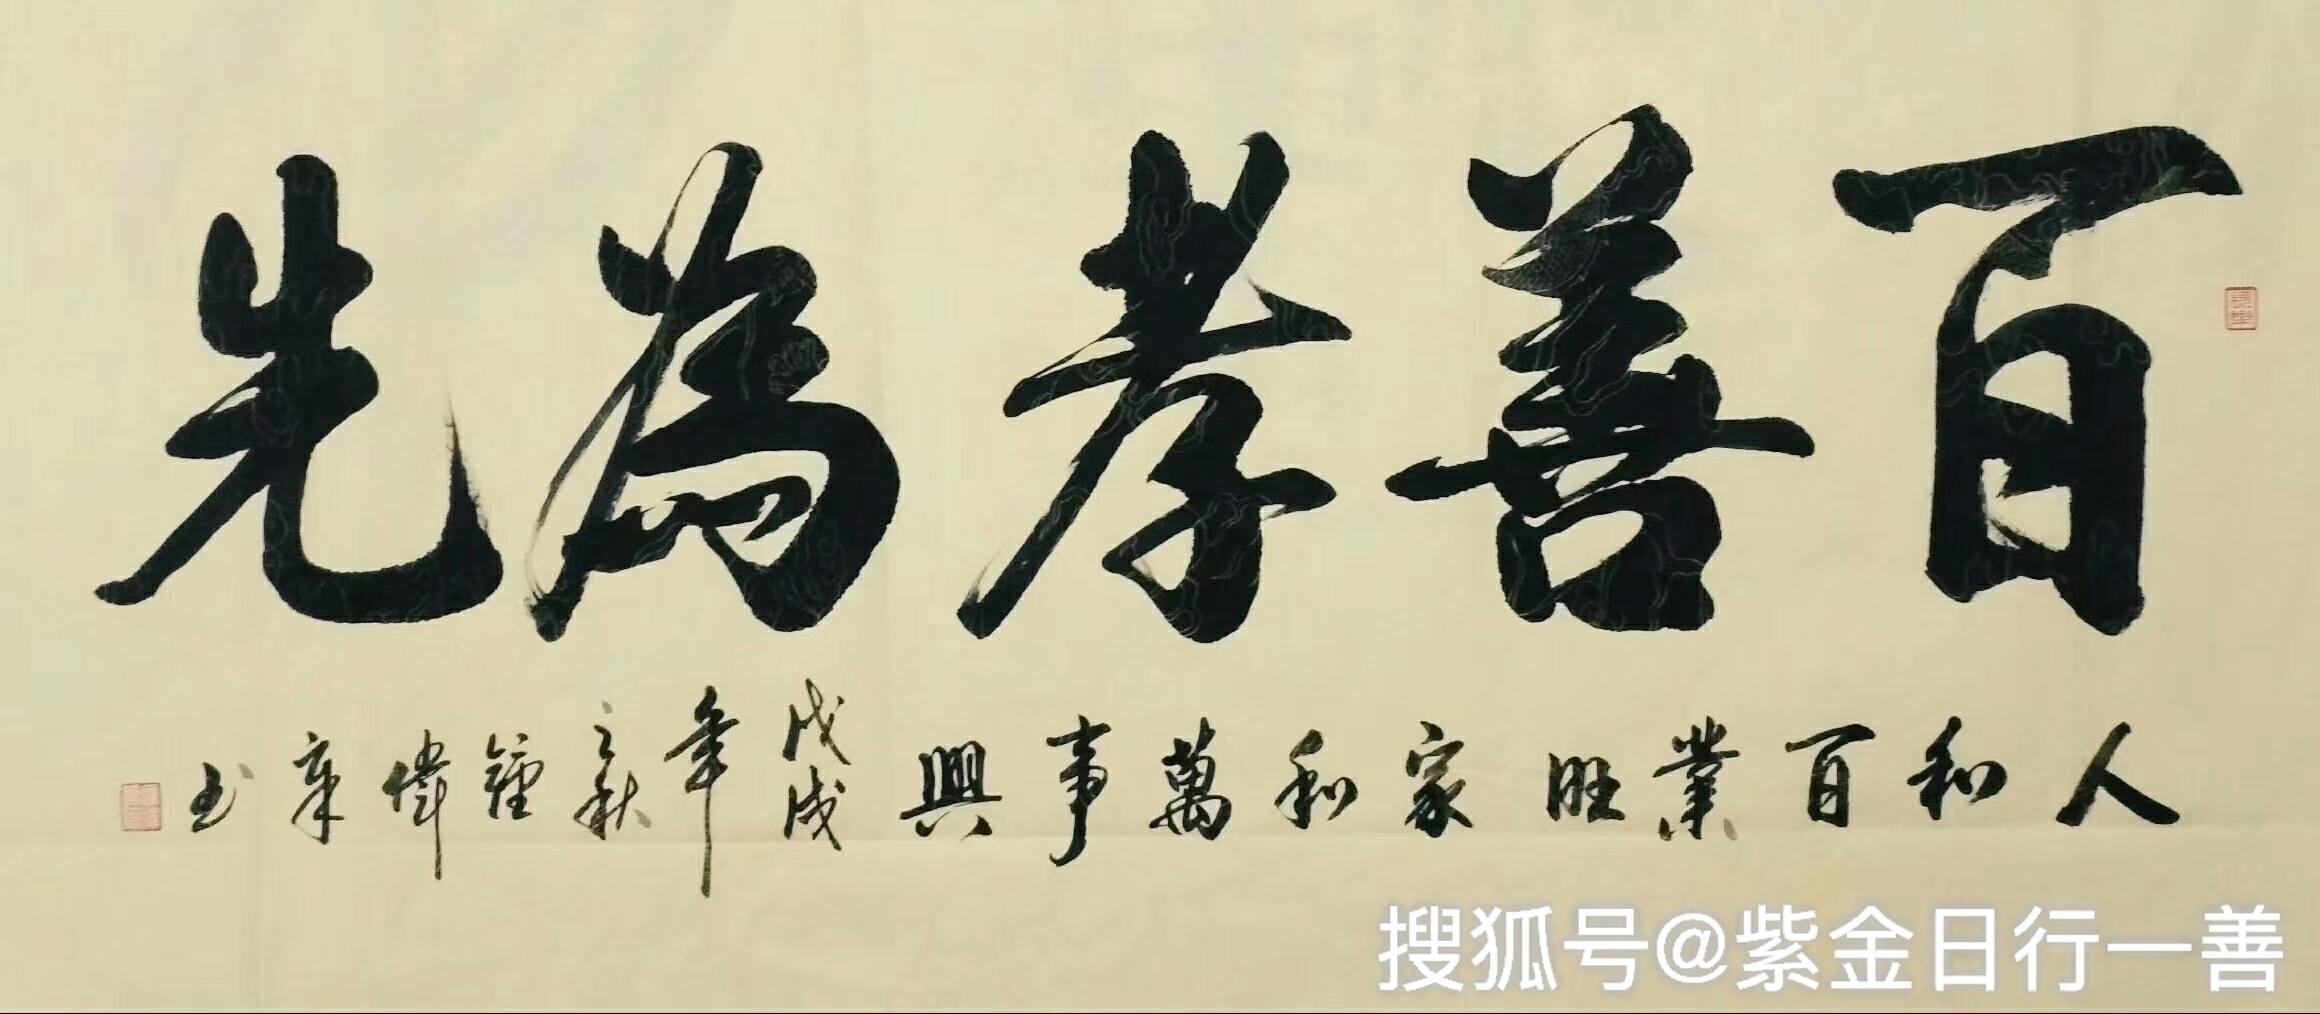 百善孝為先
人和百業旺家和萬事興
戊戌年之秋鐘偉章书
搜狐号@紫金日行一善